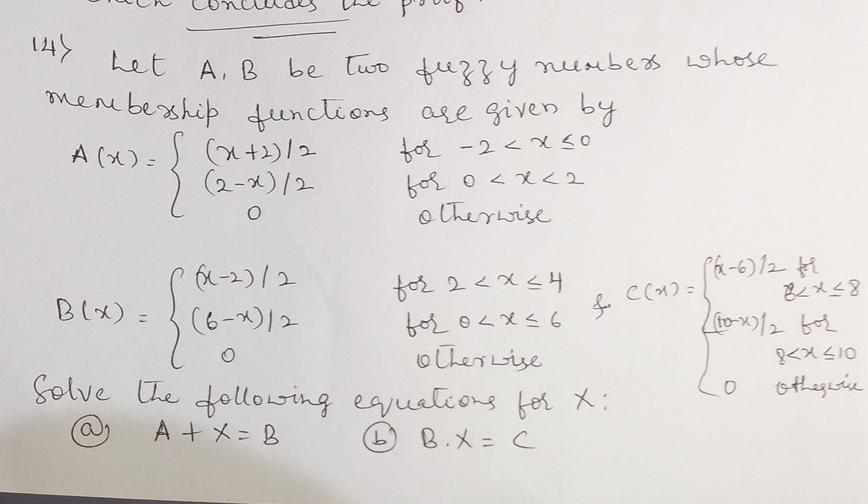 concludes the proof.
14) Let A, B be two fuzzy numbers whose
membership functions are given by
A(x) = { (x+2)/2 for -2 < x ≤ 0
(2-x)/2 for 0 < x < 2
0 otherwise
B(x) = { (x-2)/2 for 2 < x ≤ 4
(6-x)/2 for 0 < x ≤ 6
0 otherwise
& C(x) = { (x-6)/2 for
6 < x ≤ 8
(10-x)/2 for
8 < x ≤ 10
0 otherwise
Solve the following equations for X:
(a) A + X = B (b) B . X = C